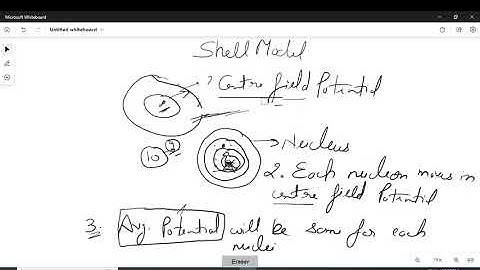 Microsoft Whiteboard
Untitled whiteboard
Shell Model
1. Centre field Potential
10
Nucleus
2. Each nucleon moves in
centre field Potential
3. Avg. Potential will be same for each
nuclei
Eraser